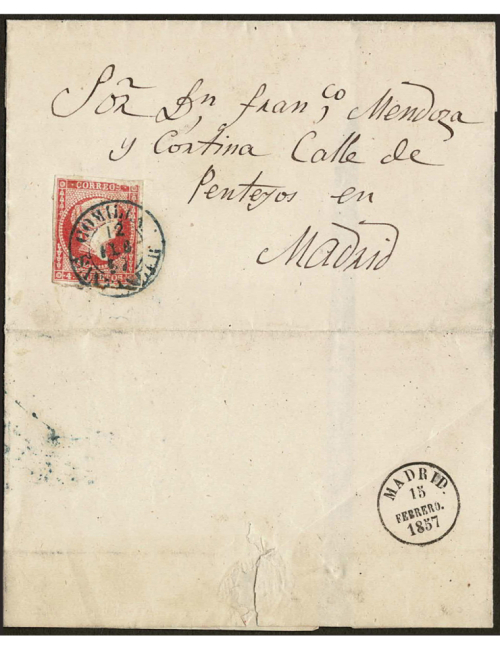 Sor Dn Franco Mendoza
y Cortina Calle de
Pontejos en
Madrid
CORREOS
COMILLAS
12
FEB
57
SANTANDER
MADRID.
15
FEBRERO.
1857